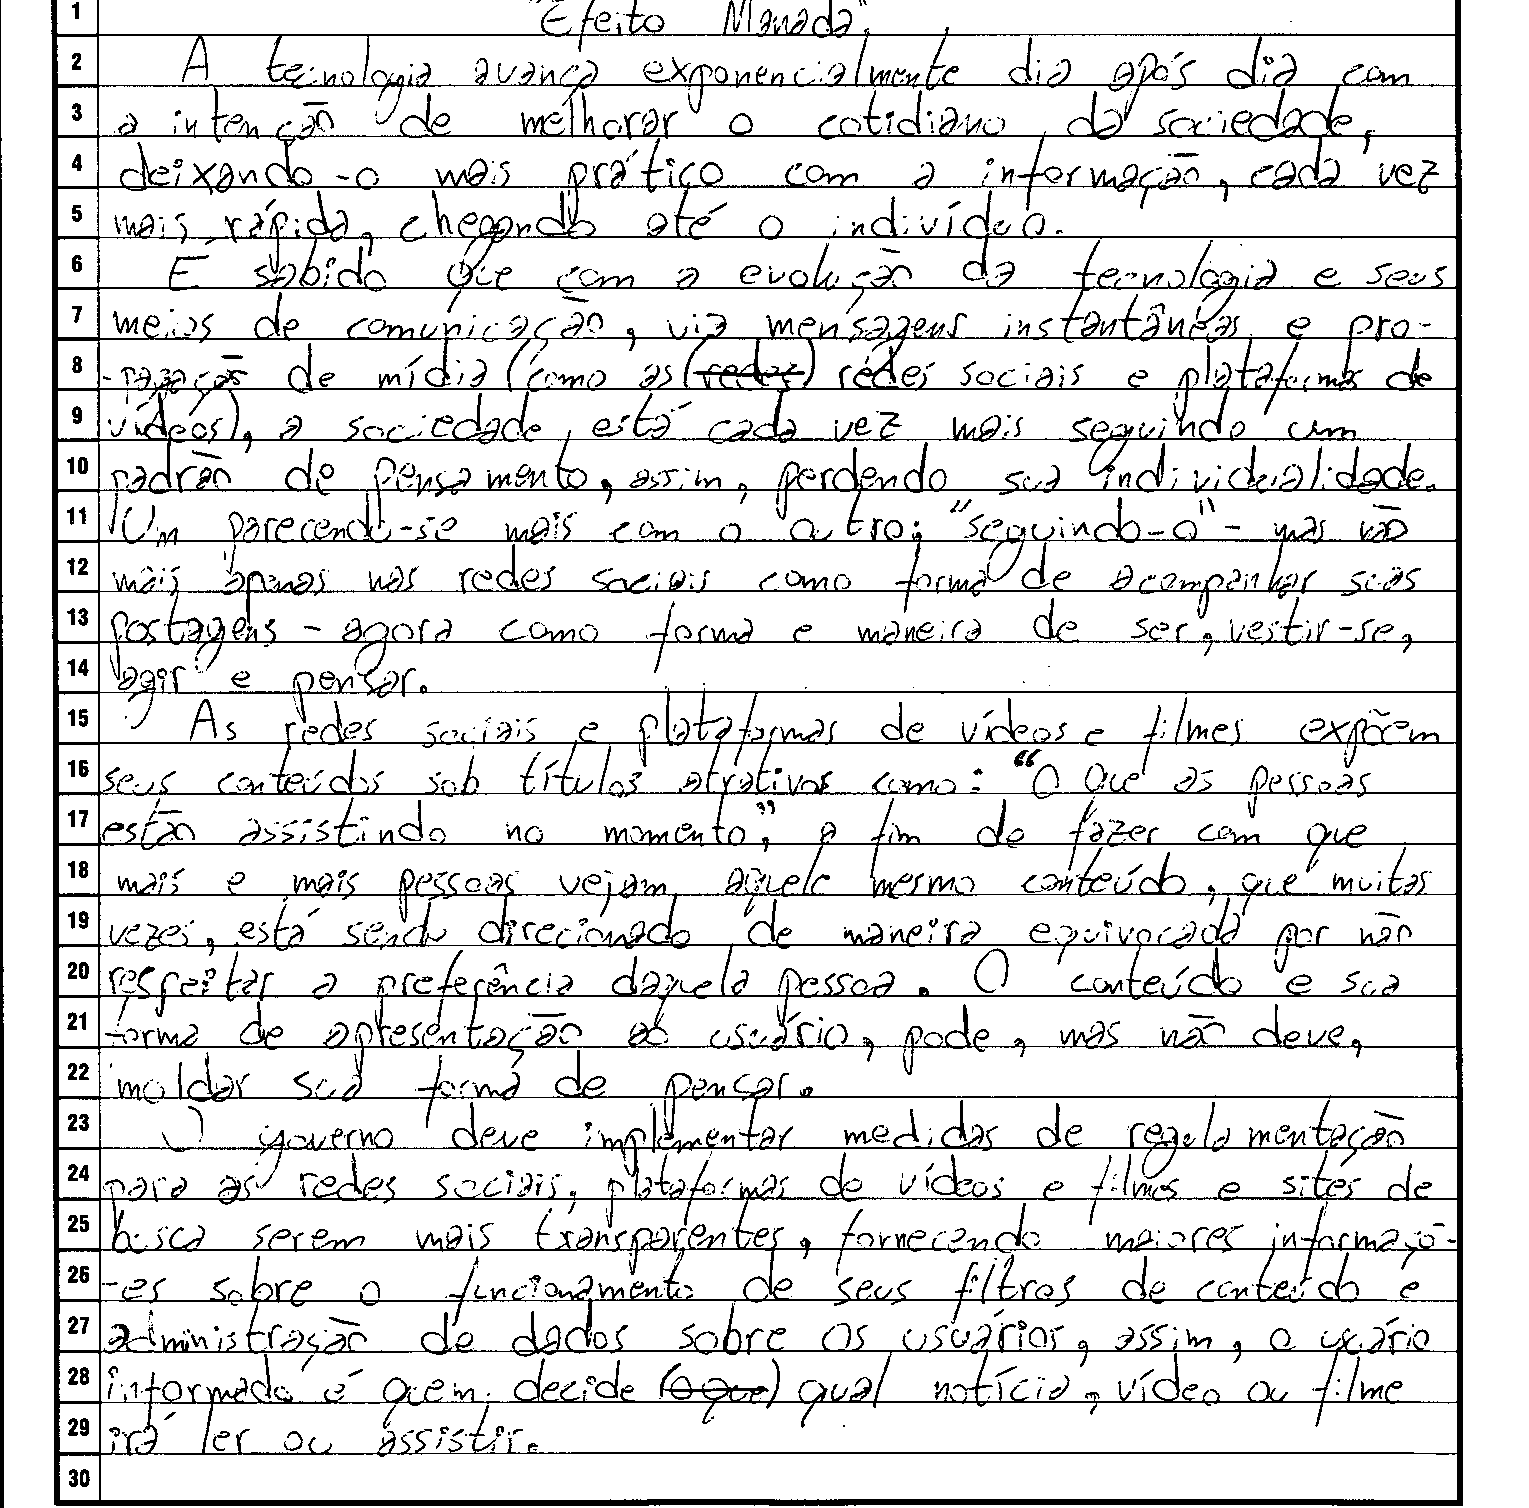 1 "Efeito Manada".
2 A tecnologia avança exponencialmente dia após dia com
3 a intenção de melhorar o cotidiano da sociedade,
4 deixando-o mais prático com a informação, cada vez
5 mais rápida, chegando até o indivíduo.
6 É sabido que com a evolução da tecnologia e seus
7 meios de comunicação, via mensagens instantâneas e pro-
8 -pagação de mídia (como as (redes) redes sociais e plataformas de
9 vídeos), a sociedade está cada vez mais seguindo um
10 padrão de pensamento, assim, perdendo sua individualidade.
11 Um parecendo-se mais com o outro; "seguindo-o" - mas não
12 mais apenas nas redes sociais como forma de acompanhar suas
13 postagens - agora como forma e maneira de ser, vestir-se,
14 agir e pensar.
15 As redes sociais e plataformas de vídeos e filmes expõem
16 seus conteúdos sob títulos atrativos como: "O que as pessoas
17 estão assistindo no momento", a fim de fazer com que
18 mais e mais pessoas vejam aquele mesmo conteúdo, que muitas
19 vezes, está sendo direcionado de maneira equivocada por não
20 respeitar a preferência daquela pessoa. O conteúdo e sua
21 forma de apresentação ao usuário, pode, mas não deve,
22 moldar sua forma de pensar.
23 O governo deve implementar medidas de regulamentação
24 para as redes sociais, plataformas de vídeos e filmes e sites de
25 busca serem mais transparentes, fornecendo maiores informaçõ-
26 -es sobre o funcionamento de seus filtros de conteúdo e
27 administração de dados sobre os usuários, assim, o usuário
28 informado é quem decide (o que) qual notícia, vídeo ou filme
29 irá ler ou assistir.
30